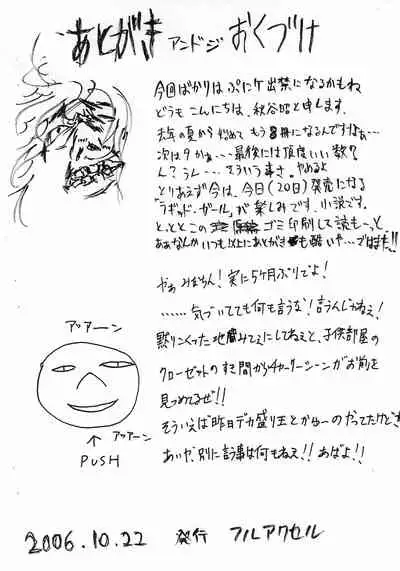 あとがき アンド おくづけ
今回ばかりはぷにケ出禁になるかもね
どうもこんにちは、秋谷昭と申します。
去年の夏から始めてもう8冊になるんですなぁ…
次は9かぁ…最後には丁度いい数?
ん?うん…そういう事さ。やめるよ
とりあえず今は、今日(20日)発売になる
「ラギッド・ガール」が楽しみです。小説です。
とっととこの ゴミ印刷して読も〜っと
ああなんかいつも以上にあとがきも酷いや…ではまた!!
やぁみなさん!実に5ヶ月ぶりでよ!
……気づいてても何も言うな!言うんじゃねえ!
黙りこくった地蔵みてぇにしてねぇと、子供部屋の
クローゼットのすき間からチャーリーシーンがお前を
見つめてるぜ!!
そういえば昨日デカ盛り王とかゆーのやってたけどさ
あいや、別に言う事は何もねえ!!あばよ!!
アッアーン
↑アッアーン
PUSH
2006.10.22 発行 フルアクセル